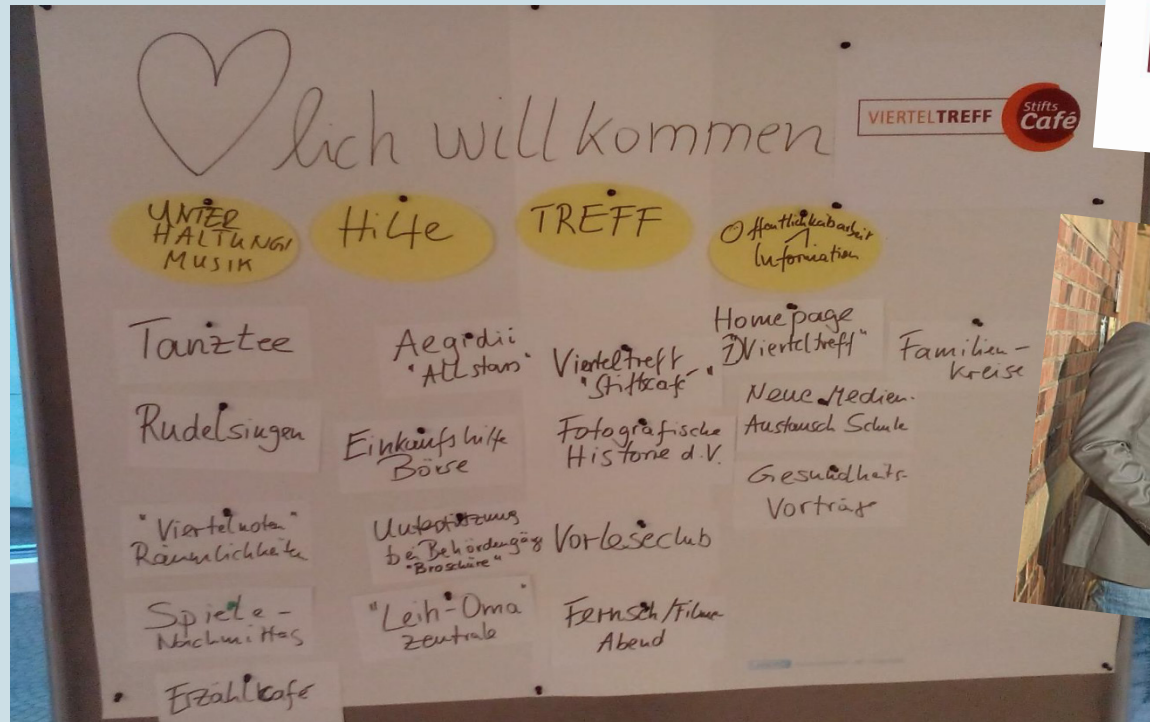 lich willkommen
VIERTELTREFF
Stifts
Café
UNTER
HALTUNG/
MUSIK
Hilfe
TREFF
Öffentlichkabarbeit
Information
Tanztee
Rudelsingen
"Viertelnoten"
Räumlichkeiten
Spiele-
Nachmittag
Erzählkafé
Aegidii
"All stars"
Einkaufshilfe
Börse
Unterstützung
bei Behördengäng
"Broschüre"
"Leih-Oma"
zentrale
Vierteltreff
"Stiftscafé"
Fotografische
Historie d.V.
Vorleseclub
Fernseh/Filme-
Abend
Homepage
"Vierteltreff"
Neue Medien-
Austausch Schule
Gesundheits-
Vorträge
Familien-
kreise